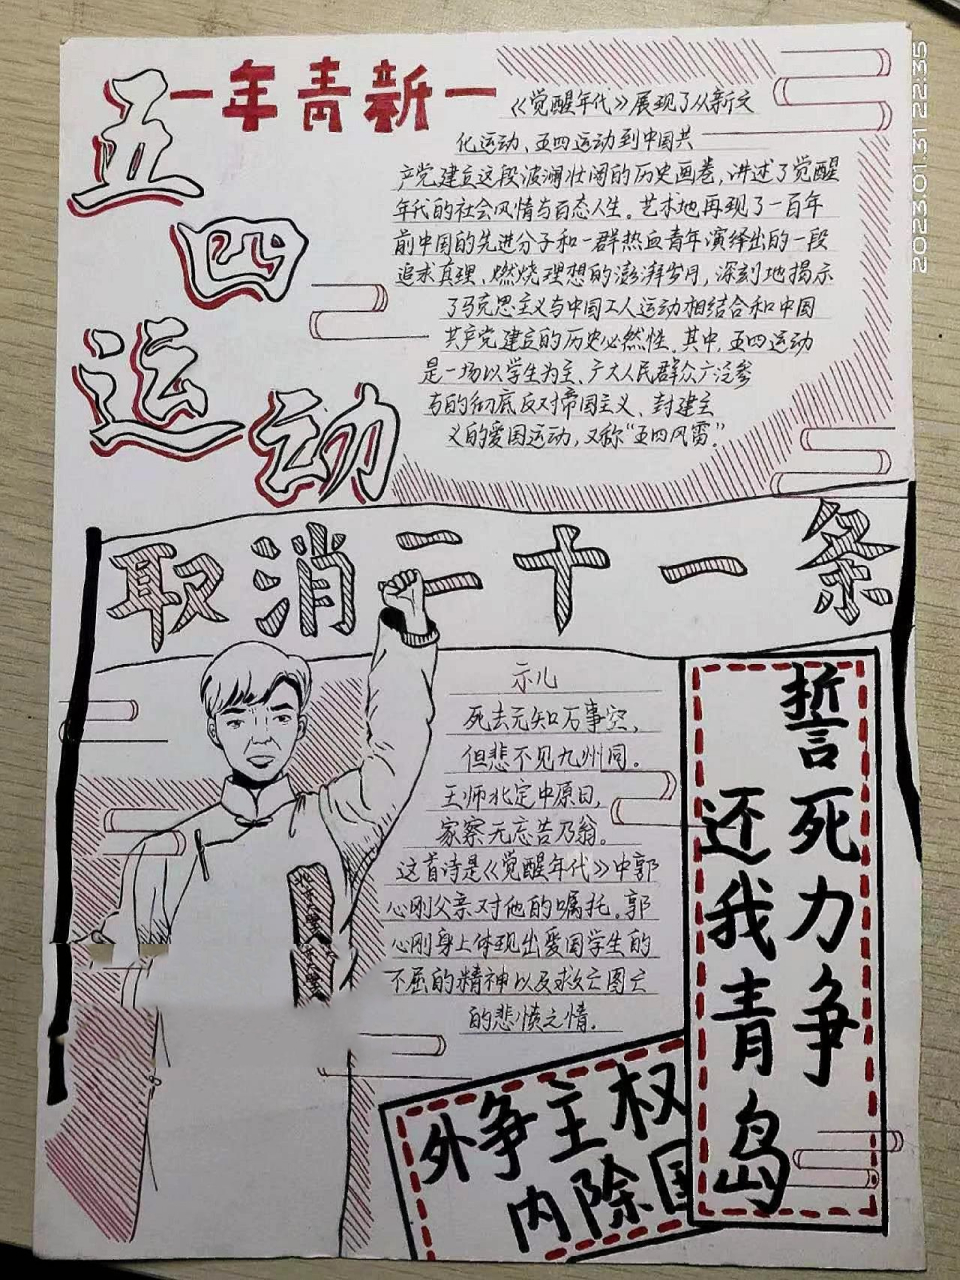 五四运动
一年青新一
《觉醒年代》展现了从新文
化运动、五四运动到中国共
产党建立这段波澜壮阔的历史画卷,讲述了觉醒
年代的社会风情与百态人生。艺术地再现了一百年
前中国的先进分子和一群热血青年演绎出的一段
追求真理、燃烧理想的澎湃岁月,深刻地揭示
了马克思主义与中国工人运动相结合和中国
共产党建立的历史必然性。其中,五四运动
是一场以学生为主、广大人民群众广泛参
与的彻底反对帝国主义、封建主
义的爱国运动,又称“五四风雷”。
取消二十一条
示儿
死去元知万事空,
但悲不见九州同。
王师北定中原日,
家祭无忘告乃翁。
这首诗是《觉醒年代》中郭
心刚父亲对他的嘱托。郭
心刚身上体现出爱国学生的
不屈的精神以及救亡图立
的悲愤之情。
誓死力争
还我青岛
外争主权
内除国
2023.01.31 22:35